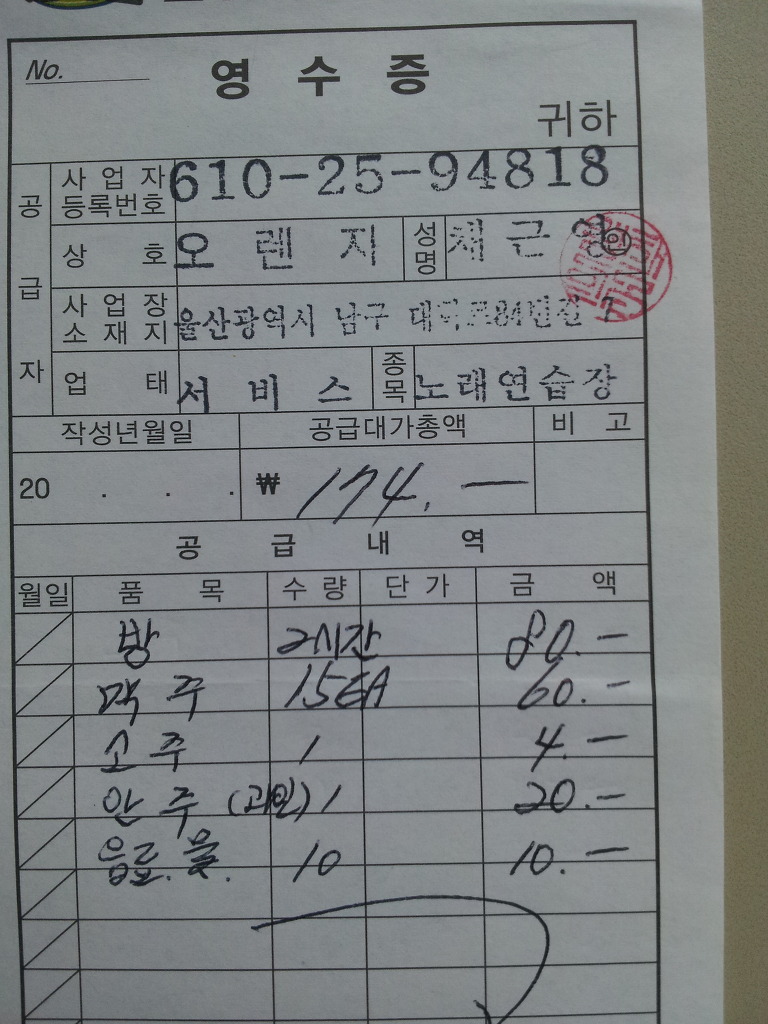 No.
영 수 증
귀하
공 급 자
사 업 자 등록번호 610-25-94818
상 호 오 렌 지 성명 채 근 영 ㊞
사 업 장 소 재 지 울산광역시 남구 84번길 7
업 태 서 비 스 종목 노래연습장
작성년월일 공급대가총액 비 고
20 . . . ₩ 174. —
공 급 내 역
월일 품 목 수 량 단 가 금 액
방 2시간 80. —
맥 주 15EA 60. —
소 주 1 4. —
안 주 (과일) 1 20. —
음료. 물. 10 10. —